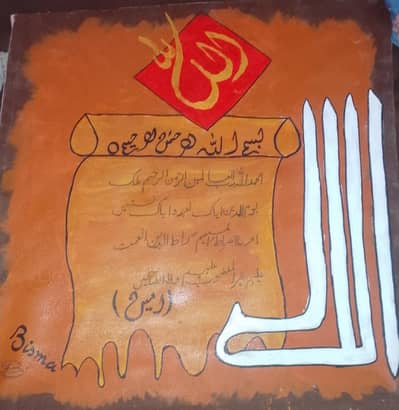 الله
بسم الله الرحمن الرحيم
الحمد لله رب العالمين الرحمن الرحيم ملك
يوم الدين اياك نعبد واياك نستعين
اهدنا الصراط المستقيم صراط الذين انعمت
عليهم غير المغضوب عليهم ولا الضالين
(امين)
الله
Bisma